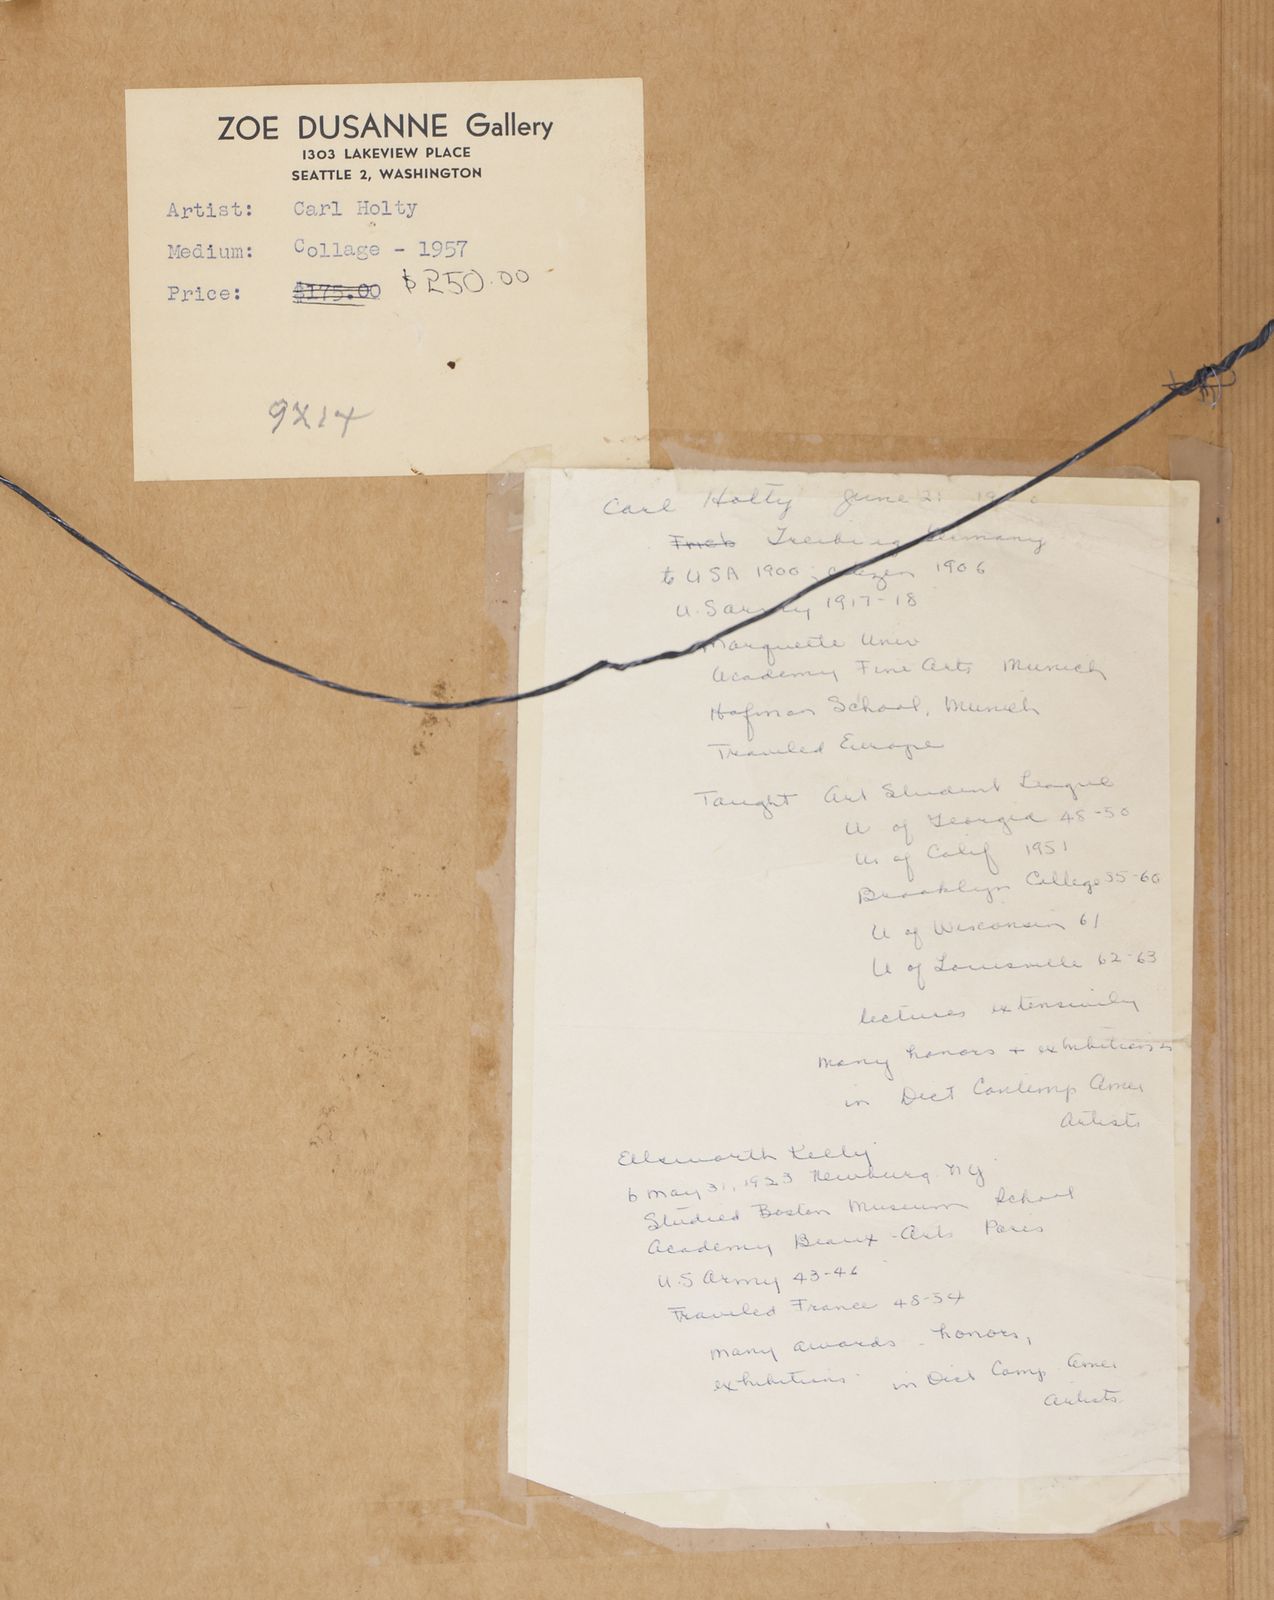 ZOE DUSANNE Gallery
1303 LAKEVIEW PLACE
SEATTLE 2, WASHINGTON
Artist: Carl Holty
Medium: Collage - 1957
Price: $175.00 $250.00
9X14
Carl Holty June 21
Freiburg Germany
to USA 1900; citizen 1906
U.S army 1917-18
Marquette Univ
Academy Fine Arts Munich
Hofman School, Munich
Traveled Europe
Taught Art Student League
U of Georgia 48-50
U. of Calif 1951
Brooklyn College 55-60
U of Wisconsin 61
U of Louisville 62-63
lectures extensively
many honors + exhibitions
in Dict Contemp Amer
Artists
Ellsworth Kelly
b May 31, 1923 Newburg. NY
Studied Boston Museum School
Academy Beaux-Arts Paris
U.S Army 43-46
Traveled France 48-54
many awards - honors,
exhibitions. in Dict Comp. Amer
Artists.